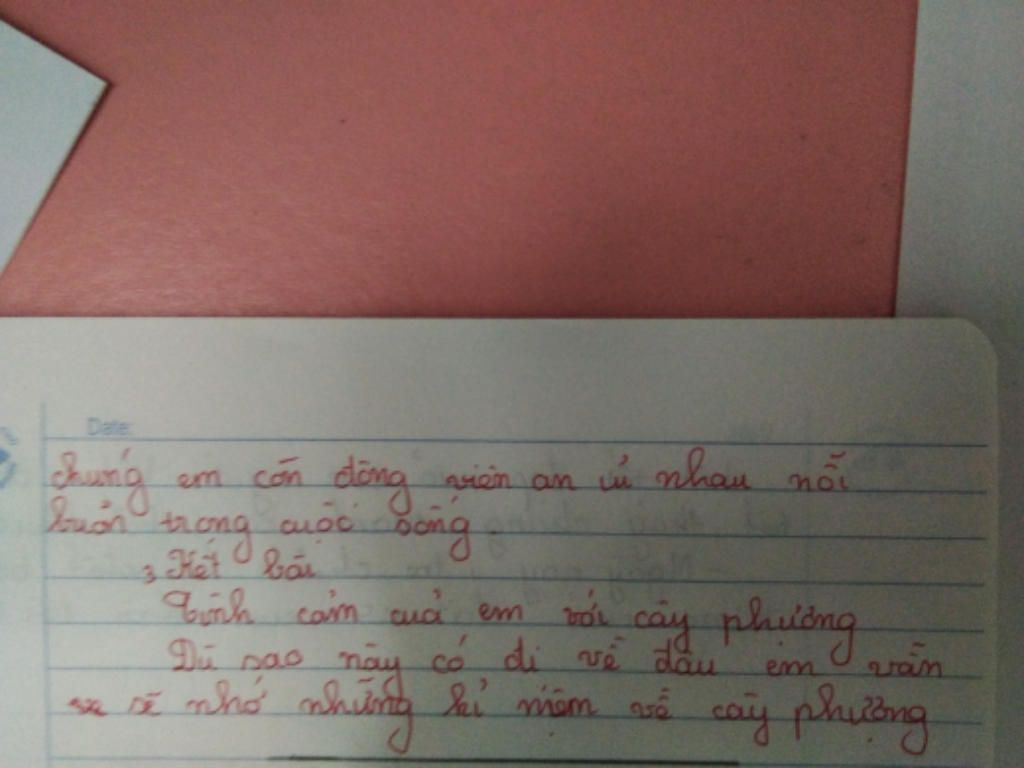 Date:
chúng em còn động viên an ủi nhau nỗi
buồn trong cuộc sống.
3 Kết bài
Tình cảm cuả em với cây phượng
Dù sao này có đi về đâu em vẫn
sẽ nhớ những kỉ niệm về cây phượng